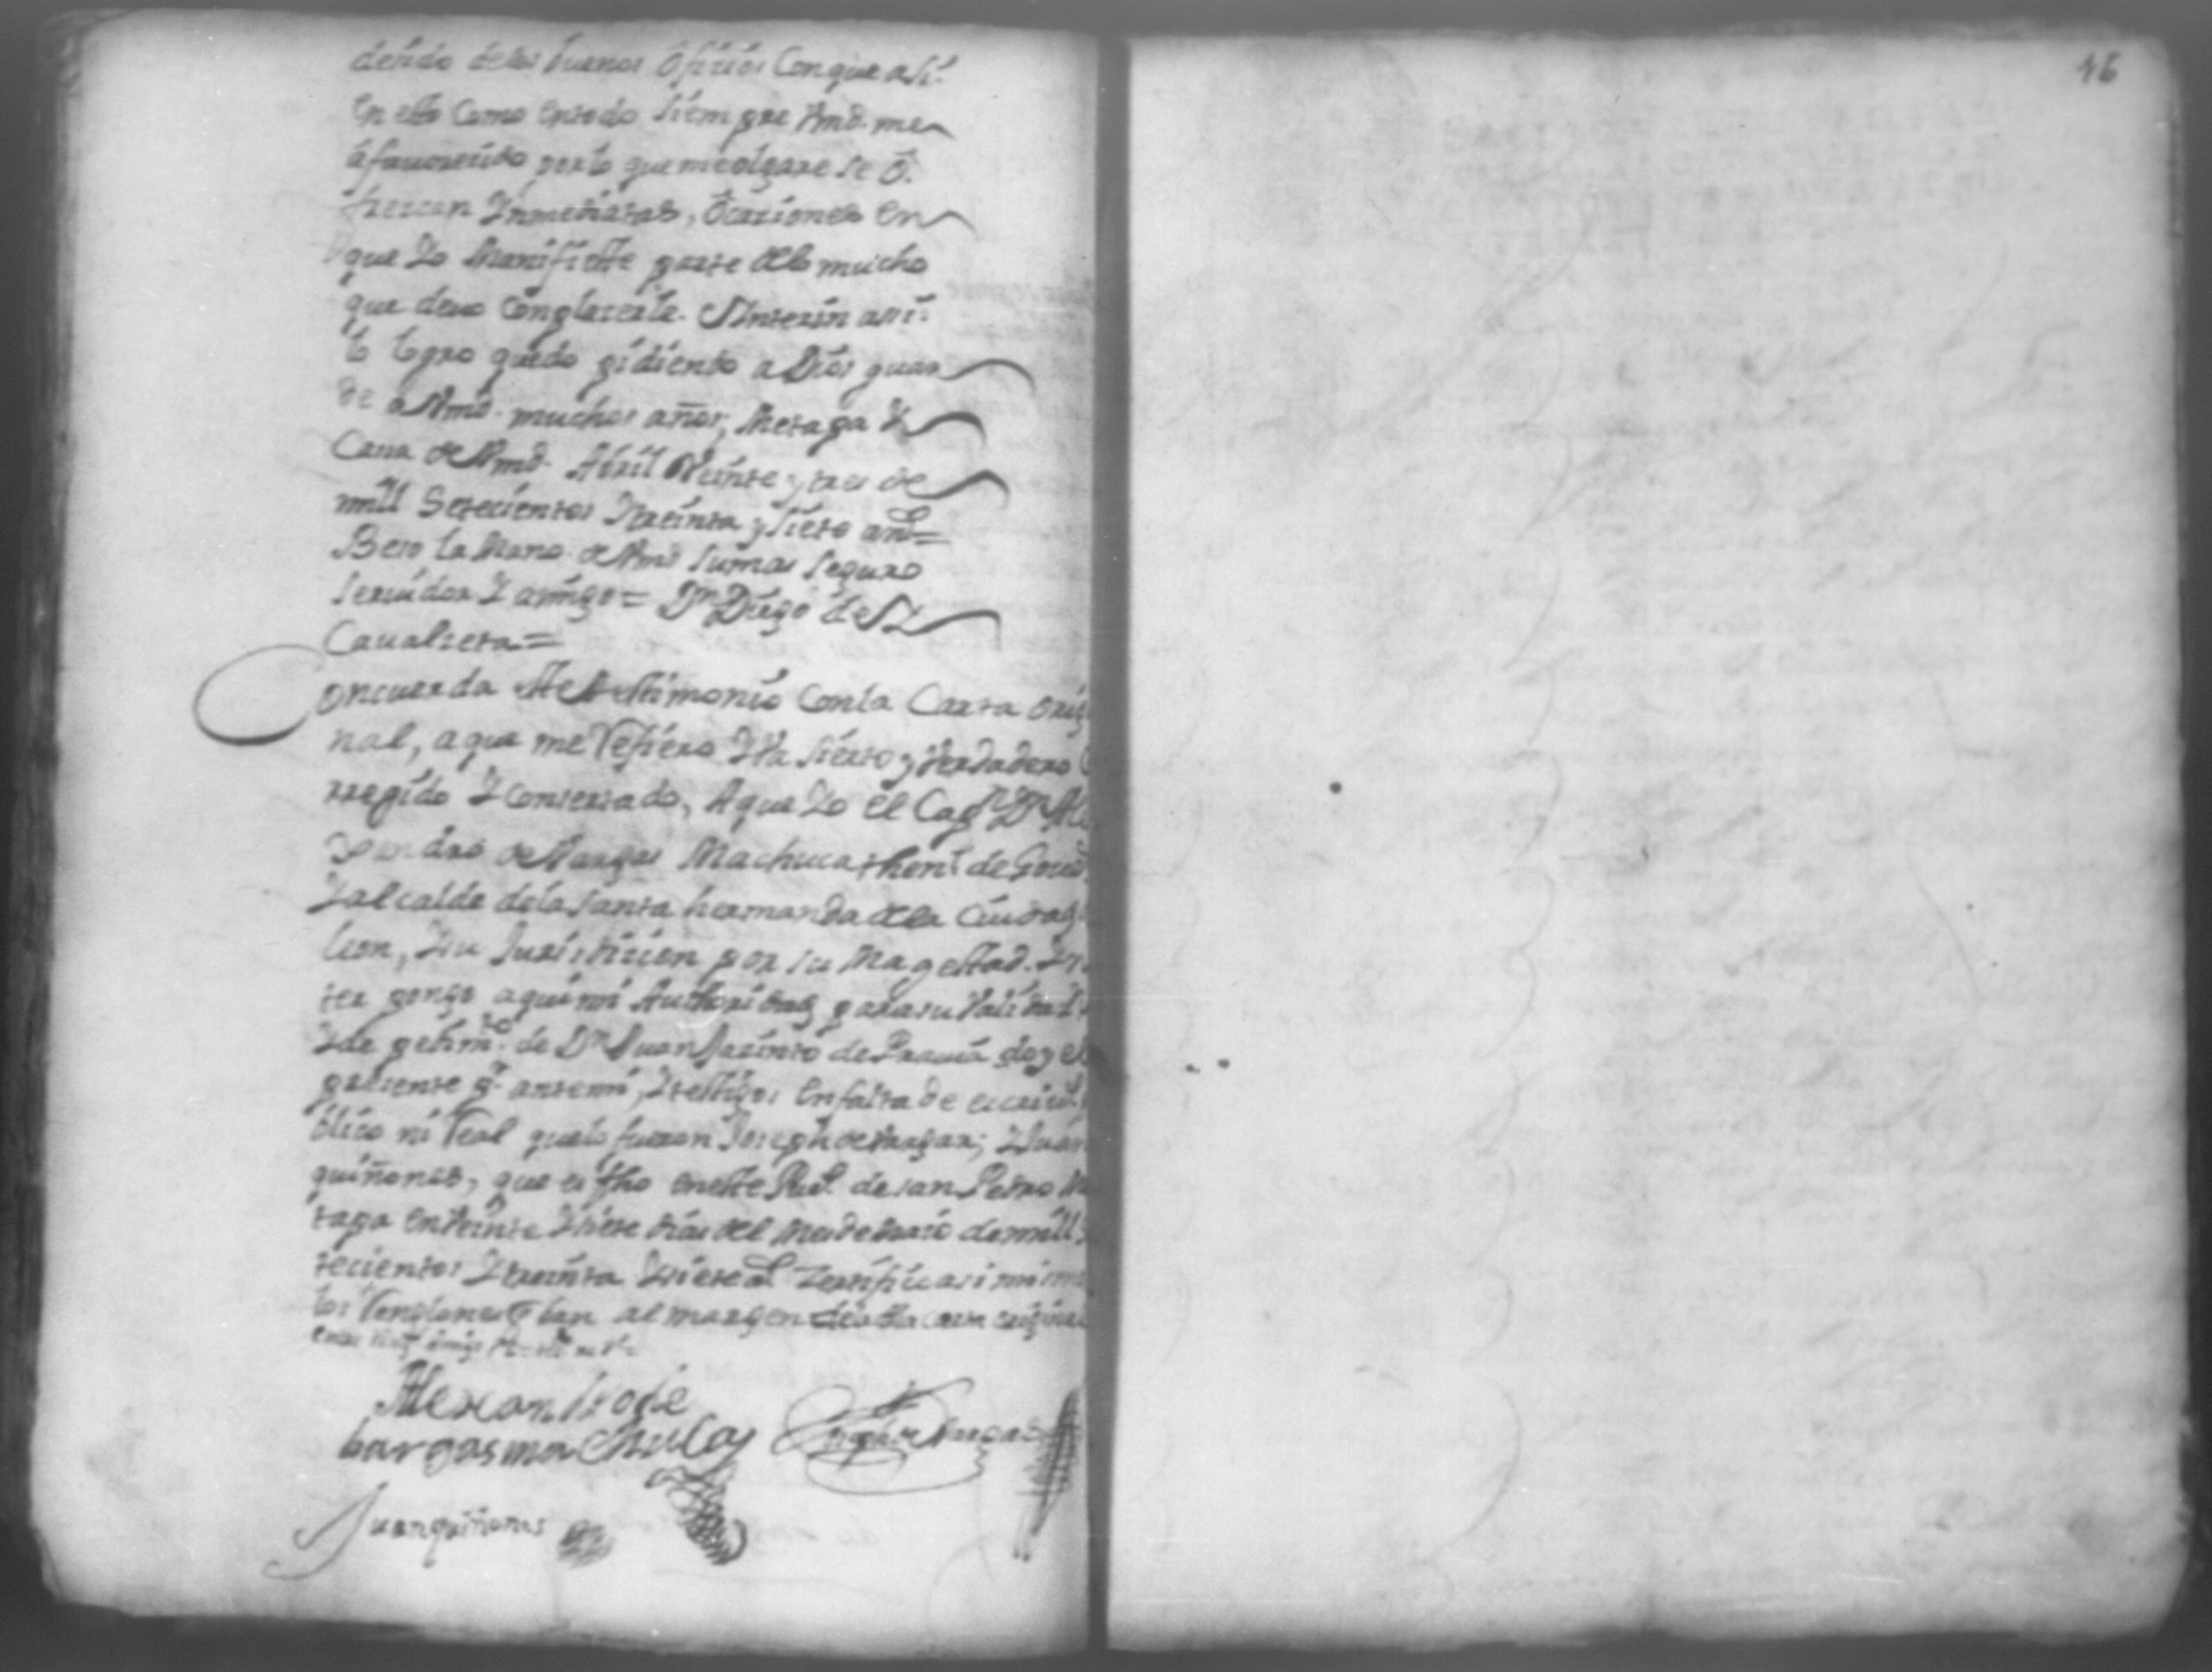 deside de los buenos ofisios Con que asi
En esto Como entodo siempre Vmd. me
á fauoresido por lo que me olgare se ó.
frescan Ynmensas, Ocaziones en
que Yo Manifieste parte de lo mucho
que deuo Conplaserle. Ynterin assi.
lo logro quedo pidiento a Dios guar
de a Vmd. muchos años, Metapa Y
Casa de Vmd. Abril Veinte y tres de
mill Setecientos Ytreinta y sieto ans=
Beso la Mano de Vmd su mas seguro
seruidor Y amigo= Dn Diego de
Caualseta=
Concuerda este testimonio Con la Carta orig
nal, a que me Refiero Yba sierto y Verdadero
rregido Y consertado, A que Yo el Capn Dn Ale
xandro de Vargas Machuca thente de Gouor
Y alcalde de la santa hermanda de la Ciudad
leon, Ysu Jurisdicion por su Magestad.
ter pongo aqui mi Authoridad para su Validad
Y de pedimto de Dn Juan Jazinto de doy el
presente por ante mi, Y testigos En falta de escriuo
blico ni Real que lo fueron Joseph de Vargas; YJuan
quiñones, que es fho en este Pueo de san Pedro Me
tapa en Veinte Ysiete dias del Mes de Maio de mill
tecientos Ytreinta Ysiete as Zertifico asi mismo
los Renglones q ban al margen de esta carta original

Alexandro de
bargas machuca Joseph de Vargas
Juan quiñones
46